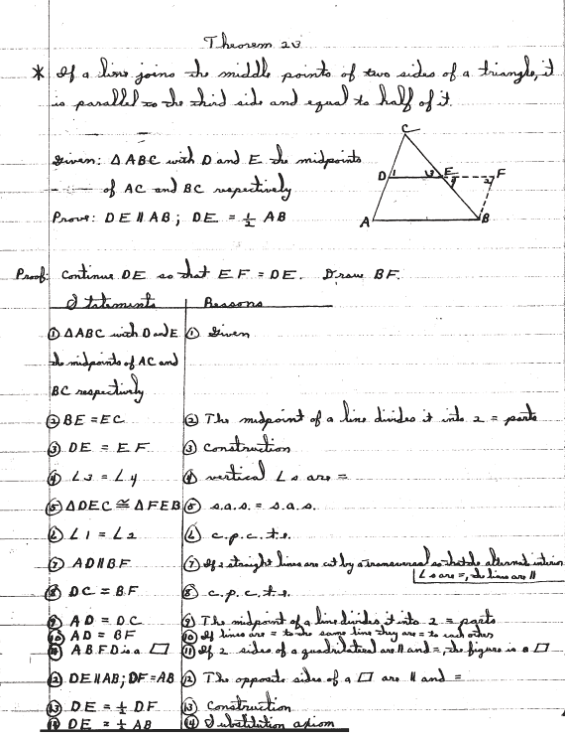 Theorem 20
* If a line joins the middle points of two sides of a triangle, it
is parallel to the third side and equal to half of it.
Given: △ABC with D and E the midpoints
of AC and BC respectively
Prove: DE ∥ AB; DE = ½ AB
C
D 1 3 E 4 2 F
A B
Proof: Continue DE so that EF = DE. Draw BF.
Statements Reasons
① △ABC with D and E ① Given
the midpoints of AC and
BC respectively
② BE = EC ② The midpoint of a line divides it into 2 = parts
③ DE = EF ③ Construction
④ ∠3 = ∠4 ④ vertical ∠s are =
⑤ △DEC ≅ △FEB ⑤ s.a.s. = s.a.s.
⑥ ∠1 = ∠2 ⑥ c.p.c.t.e.
⑦ AD ∥ BF ⑦ If 2 straight lines are cut by a transversal so that the alternate interior
∠s are =, the lines are ∥
⑧ DC = BF ⑧ c.p.c.t.e.
⑨ AD = DC ⑨ The midpoint of a line divides it into 2 = parts
⑩ AD = BF ⑩ If lines are = to the same line they are = to each other
⑪ ABFD is a ▱ ⑪ If 2 sides of a quadrilateral are ∥ and =, the figure is a ▱
⑫ DE ∥ AB; DF = AB ⑫ The opposite sides of a ▱ are ∥ and =
⑬ DE = ½ DF ⑬ Construction
⑭ DE = ½ AB ⑭ Substitution axiom